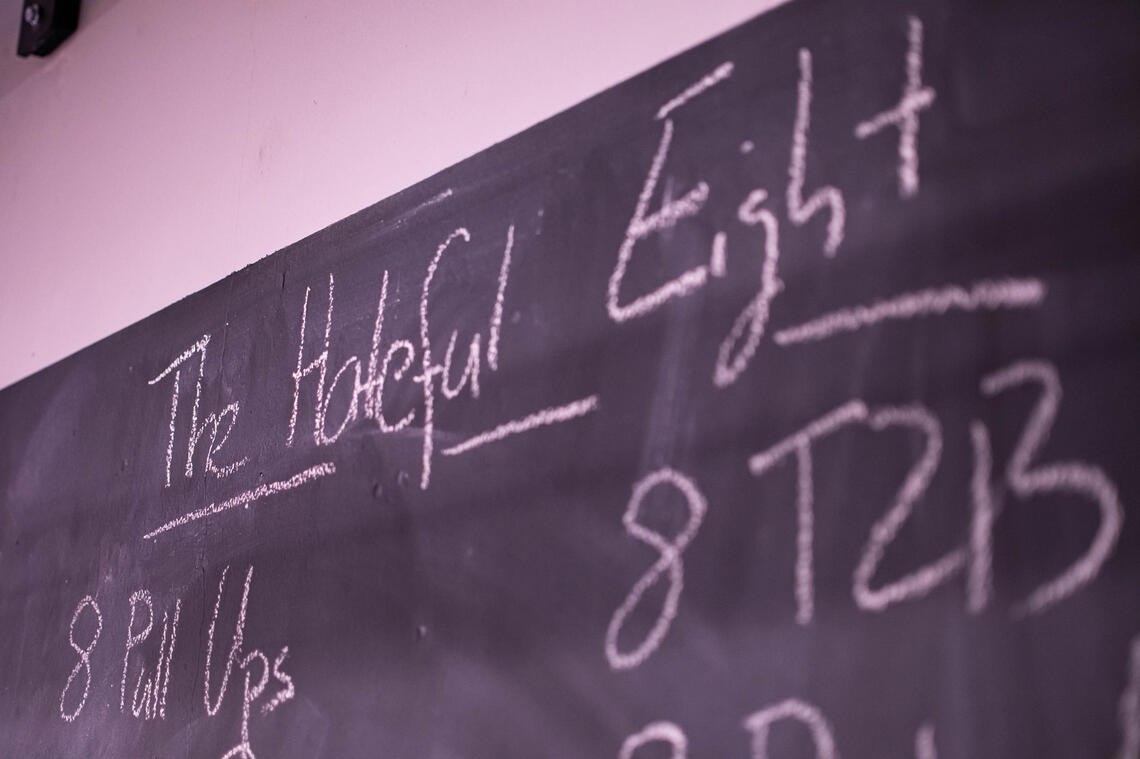 The Hateful Eight
8 Pull Ups
8 T2B
8